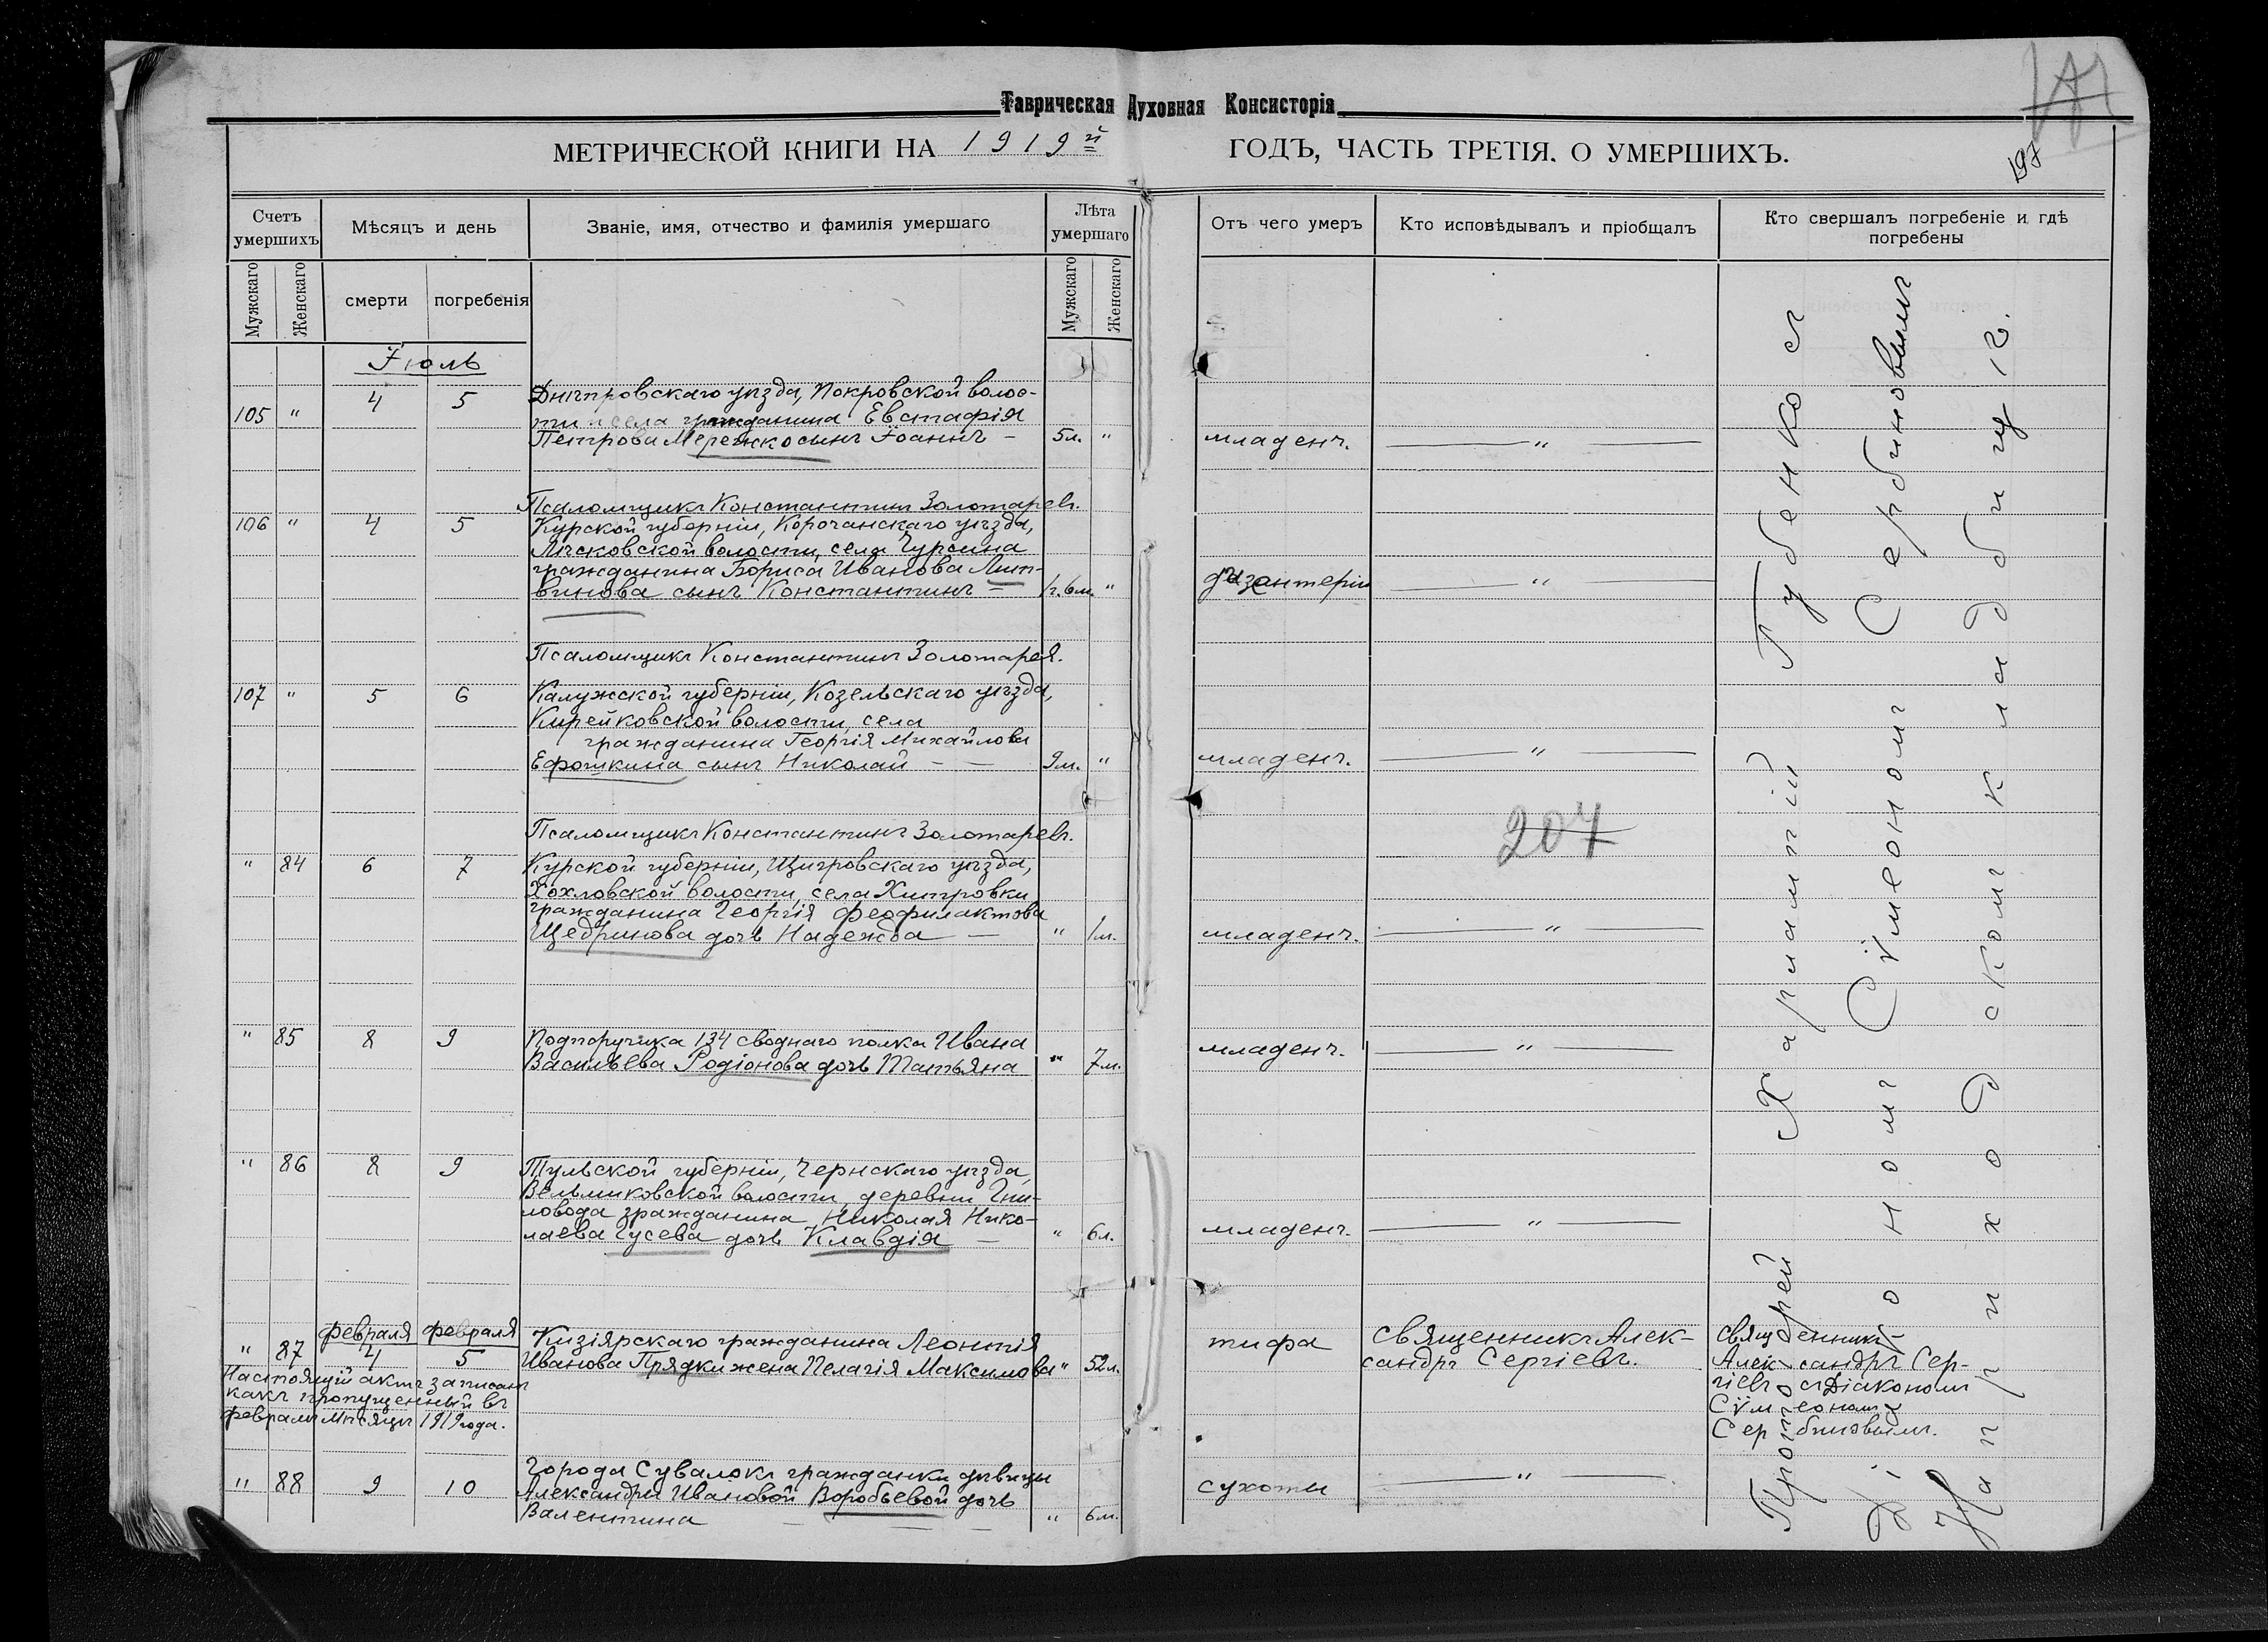 Таврическая Духовная Консисторія
МЕТРИЧЕСКОЙ КНИГИ НА 1919й ГОДЪ, ЧАСТЬ ТРЕТІЯ. О УМЕРШИХЪ.
197
Счетъ умершихъ
Мѣсяцъ и день
Званіе, имя, отчество и фамилія умершаго
Лѣта умершаго
Отъ чего умеръ
Кто исповѣдывалъ и пріобщалъ
Кто свершалъ погребеніе и гдѣ погребены
Мужскаго
Женскаго
смерти
погребенія
Мужскаго
Женскаго
Іюль
105 " 4 5 Днѣпровскаго уѣзда, Покровской волос-
ти села гражданина Евстафія
Петрова Мережко сынъ Іоаннъ – 5л. " младенч. — " —
Псаломщикъ Константинъ Золотаревъ.
106 " 4 5 Курской губерніи, Корочанскаго уѣзда,
волости, села
гражданина Бориса Иванова Лит-
винова сынъ Константинъ – 1г.6м. " дизентеріи — " —
Псаломщикъ Константинъ Золотарев.
107 " 5 6 Калужской губерніи, Козельскаго уѣзда,
Кирейковской волости, села
гражданина Георгія Михайлова
Ефошкина сынъ Николай – – 9м. " младенч. — " —
207
Псаломщикъ Константинъ Золотаревъ.
" 84 6 7 Курской губерніи, Щигровскаго уѣзда,
Хохловской волости, села Хитровки
гражданина Георгія Феофилактова
Щедринова дочь Надежда – " 1м. младенч. — " —
" 85 8 9 Подпоручика 134 своднаго полка Ивана
Васильева Родіонова дочь Татьяна " 7м. младенч. — " —
" 86 8 9 Тульской губерніи, Чернскаго уѣзда,
волости, деревни Гни-
ловода гражданина Николая Нико-
лаева Гусева дочь Клавдія – " 6л. младенч. — " —
февраля февраля
" 87 4 5 Кизіярскаго гражданина Леонтія
Иванова Прядки жена Пелагія Максимова " 52л. тифа Священникъ Алек-
сандръ Сергіевъ.
Священникъ
Александръ Сер-
гіевъ съ Діакономъ
Сѵмеономъ
Сербиновымъ.
Настоящій актъ записанъ
какъ пропущенный въ
февралѣ мѣсяцѣ 1919 года.
" 88 9 10 Города Сувалокъ гражданки дѣвицы
Александры Ивановой Воробьевой дочь
Валентина – – – " 6м. сухоты — " —
Протоіерей Харлампій Губенко съ
Діакономъ Сѵмеономъ Сербиновымъ
На приходскомъ кладбищѣ.